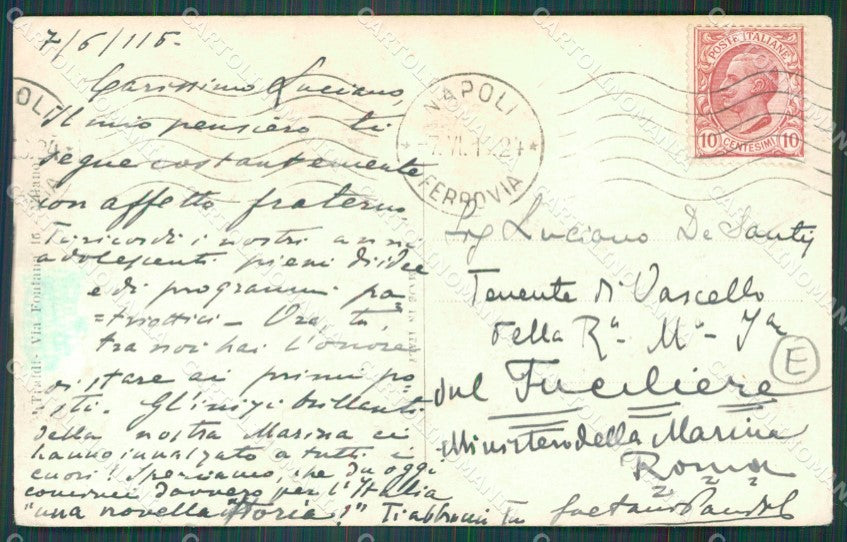 7/6/115.
Carissimo Luciano,
Il mio pensiero ti
segue costantemente
con affetto fraterno.
Ti ricordi i nostri anni
adolescenti pieni di idee
e di programmi pa=
=triottici - Ora, tu,
tra noi hai l'onore
di stare ai primi po=
sti. Gl'inizi brillanti
della nostra Marina ci
hanno innalzato a tutti i
cuori! Speriamo, che da oggi
cominci davvero per l'Italia
"una novella storia!" Ti abbraccia Tuo
Gaetano
NAPOLI
FERROVIA
POSTE ITALIANE
10 CENTESIMI 10
Sig Luciano De Santis
Tenente di Vascello
della Ra. Ma. Ina
sul Fuciliere
E
Ministero della Marina
Roma
Via Fontana 16
CARTOLINOMANIA